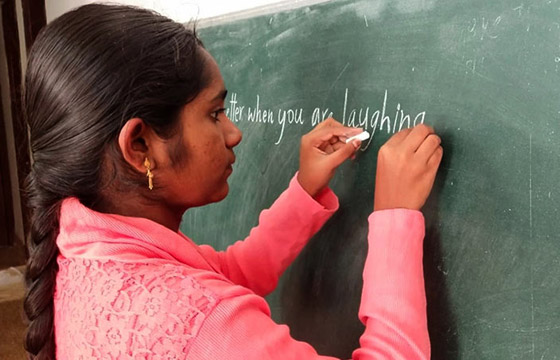 when you are laughing